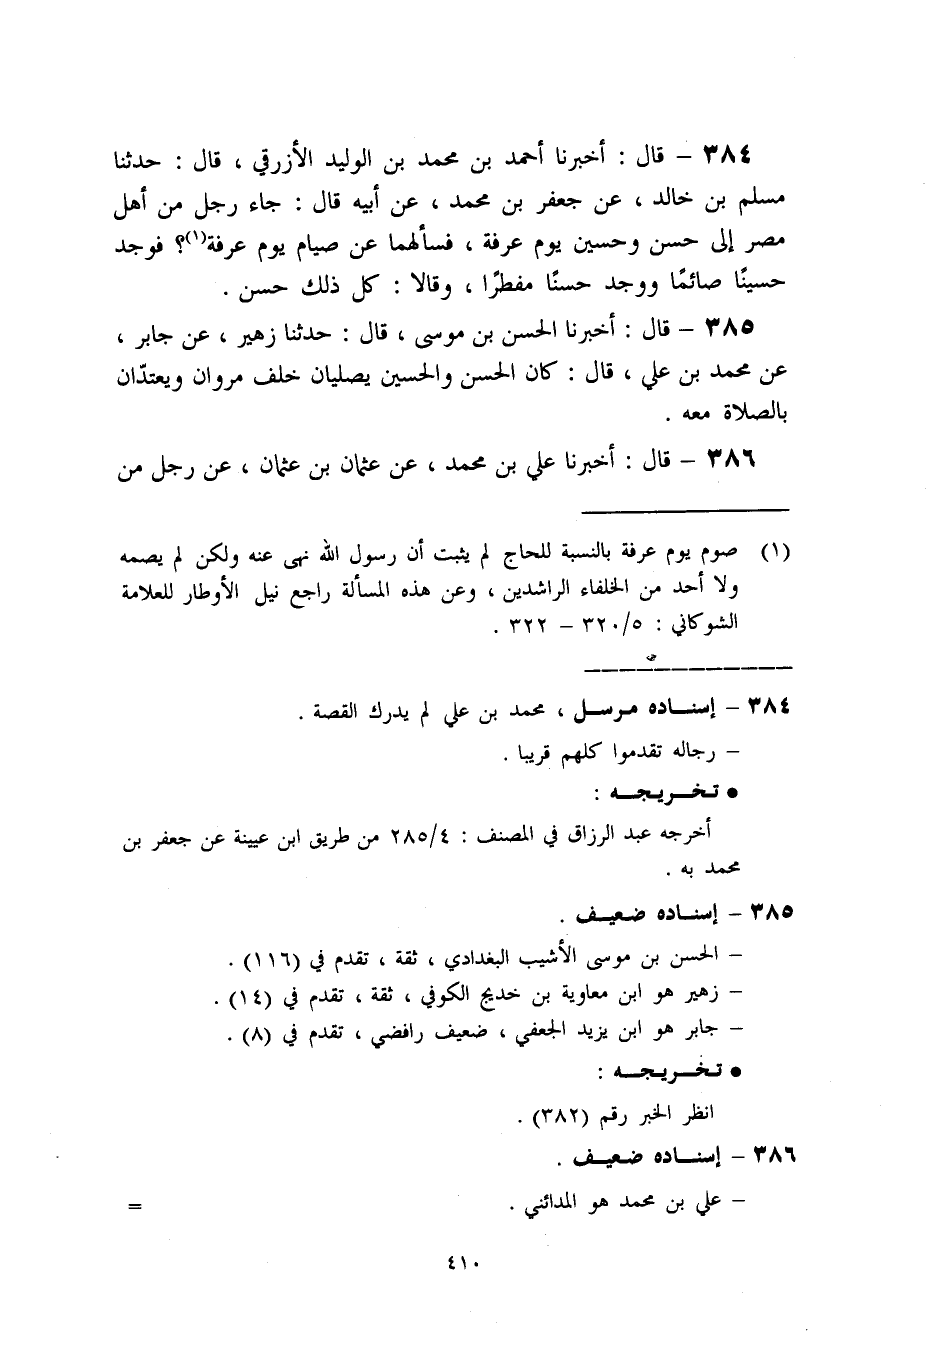 ٣٨٤ – قال : أخبرنا أحمد بن محمد بن الوليد الأزرقي ، قال : حدثنا
مسلم بن خالد ، عن جعفر بن محمد ، عن أبيه قال : جاء رجل من أهل
مصر إلى حسن وحسين يوم عرفة ، فسألهما عن صيام يوم عرفة(١)؟ فوجد
حسينًا صائمًا ووجد حسنًا مفطرًا ، وقالا : كل ذلك حسن .
٣٨٥ – قال : أخبرنا الحسن بن موسى ، قال : حدثنا زهير ، عن جابر ،
عن محمد بن علي ، قال : كان الحسن والحسين يصليان خلف مروان ويعتدّان
بالصلاة معه .
٣٨٦ – قال : أخبرنا علي بن محمد ، عن عثمان بن عثمان ، عن رجل من
(١) صوم يوم عرفة بالنسبة للحاج لم يثبت أن رسول الله نهى عنه ولكن لم يصمه
ولا أحد من الخلفاء الراشدين ، وعن هذه المسألة راجع نيل الأوطار للعلامة
الشوكاني : ٣٢٠/٥ – ٣٢٢ .
٣٨٤ – إسناده مرسل ، محمد بن علي لم يدرك القصة .
– رجاله تقدموا كلهم قريبا .
• تخريجه :
أخرجه عبد الرزاق في المصنف : ٢٨٥/٤ من طريق ابن عيينة عن جعفر بن
محمد به .
٣٨٥ – إسناده ضعيف .
– الحسن بن موسى الأشيب البغدادي ، ثقة ، تقدم في (١١٦) .
– زهير هو ابن معاوية بن خديج الكوفي ، ثقة ، تقدم في (١٤) .
– جابر هو ابن يزيد الجعفي ، ضعيف رافضي ، تقدم في (٨) .
• تخريجه :
انظر الخبر رقم (٣٨٢) .
٣٨٦ – إسناده ضعيف .
– علي بن محمد هو المدائني .
=
٤١٠